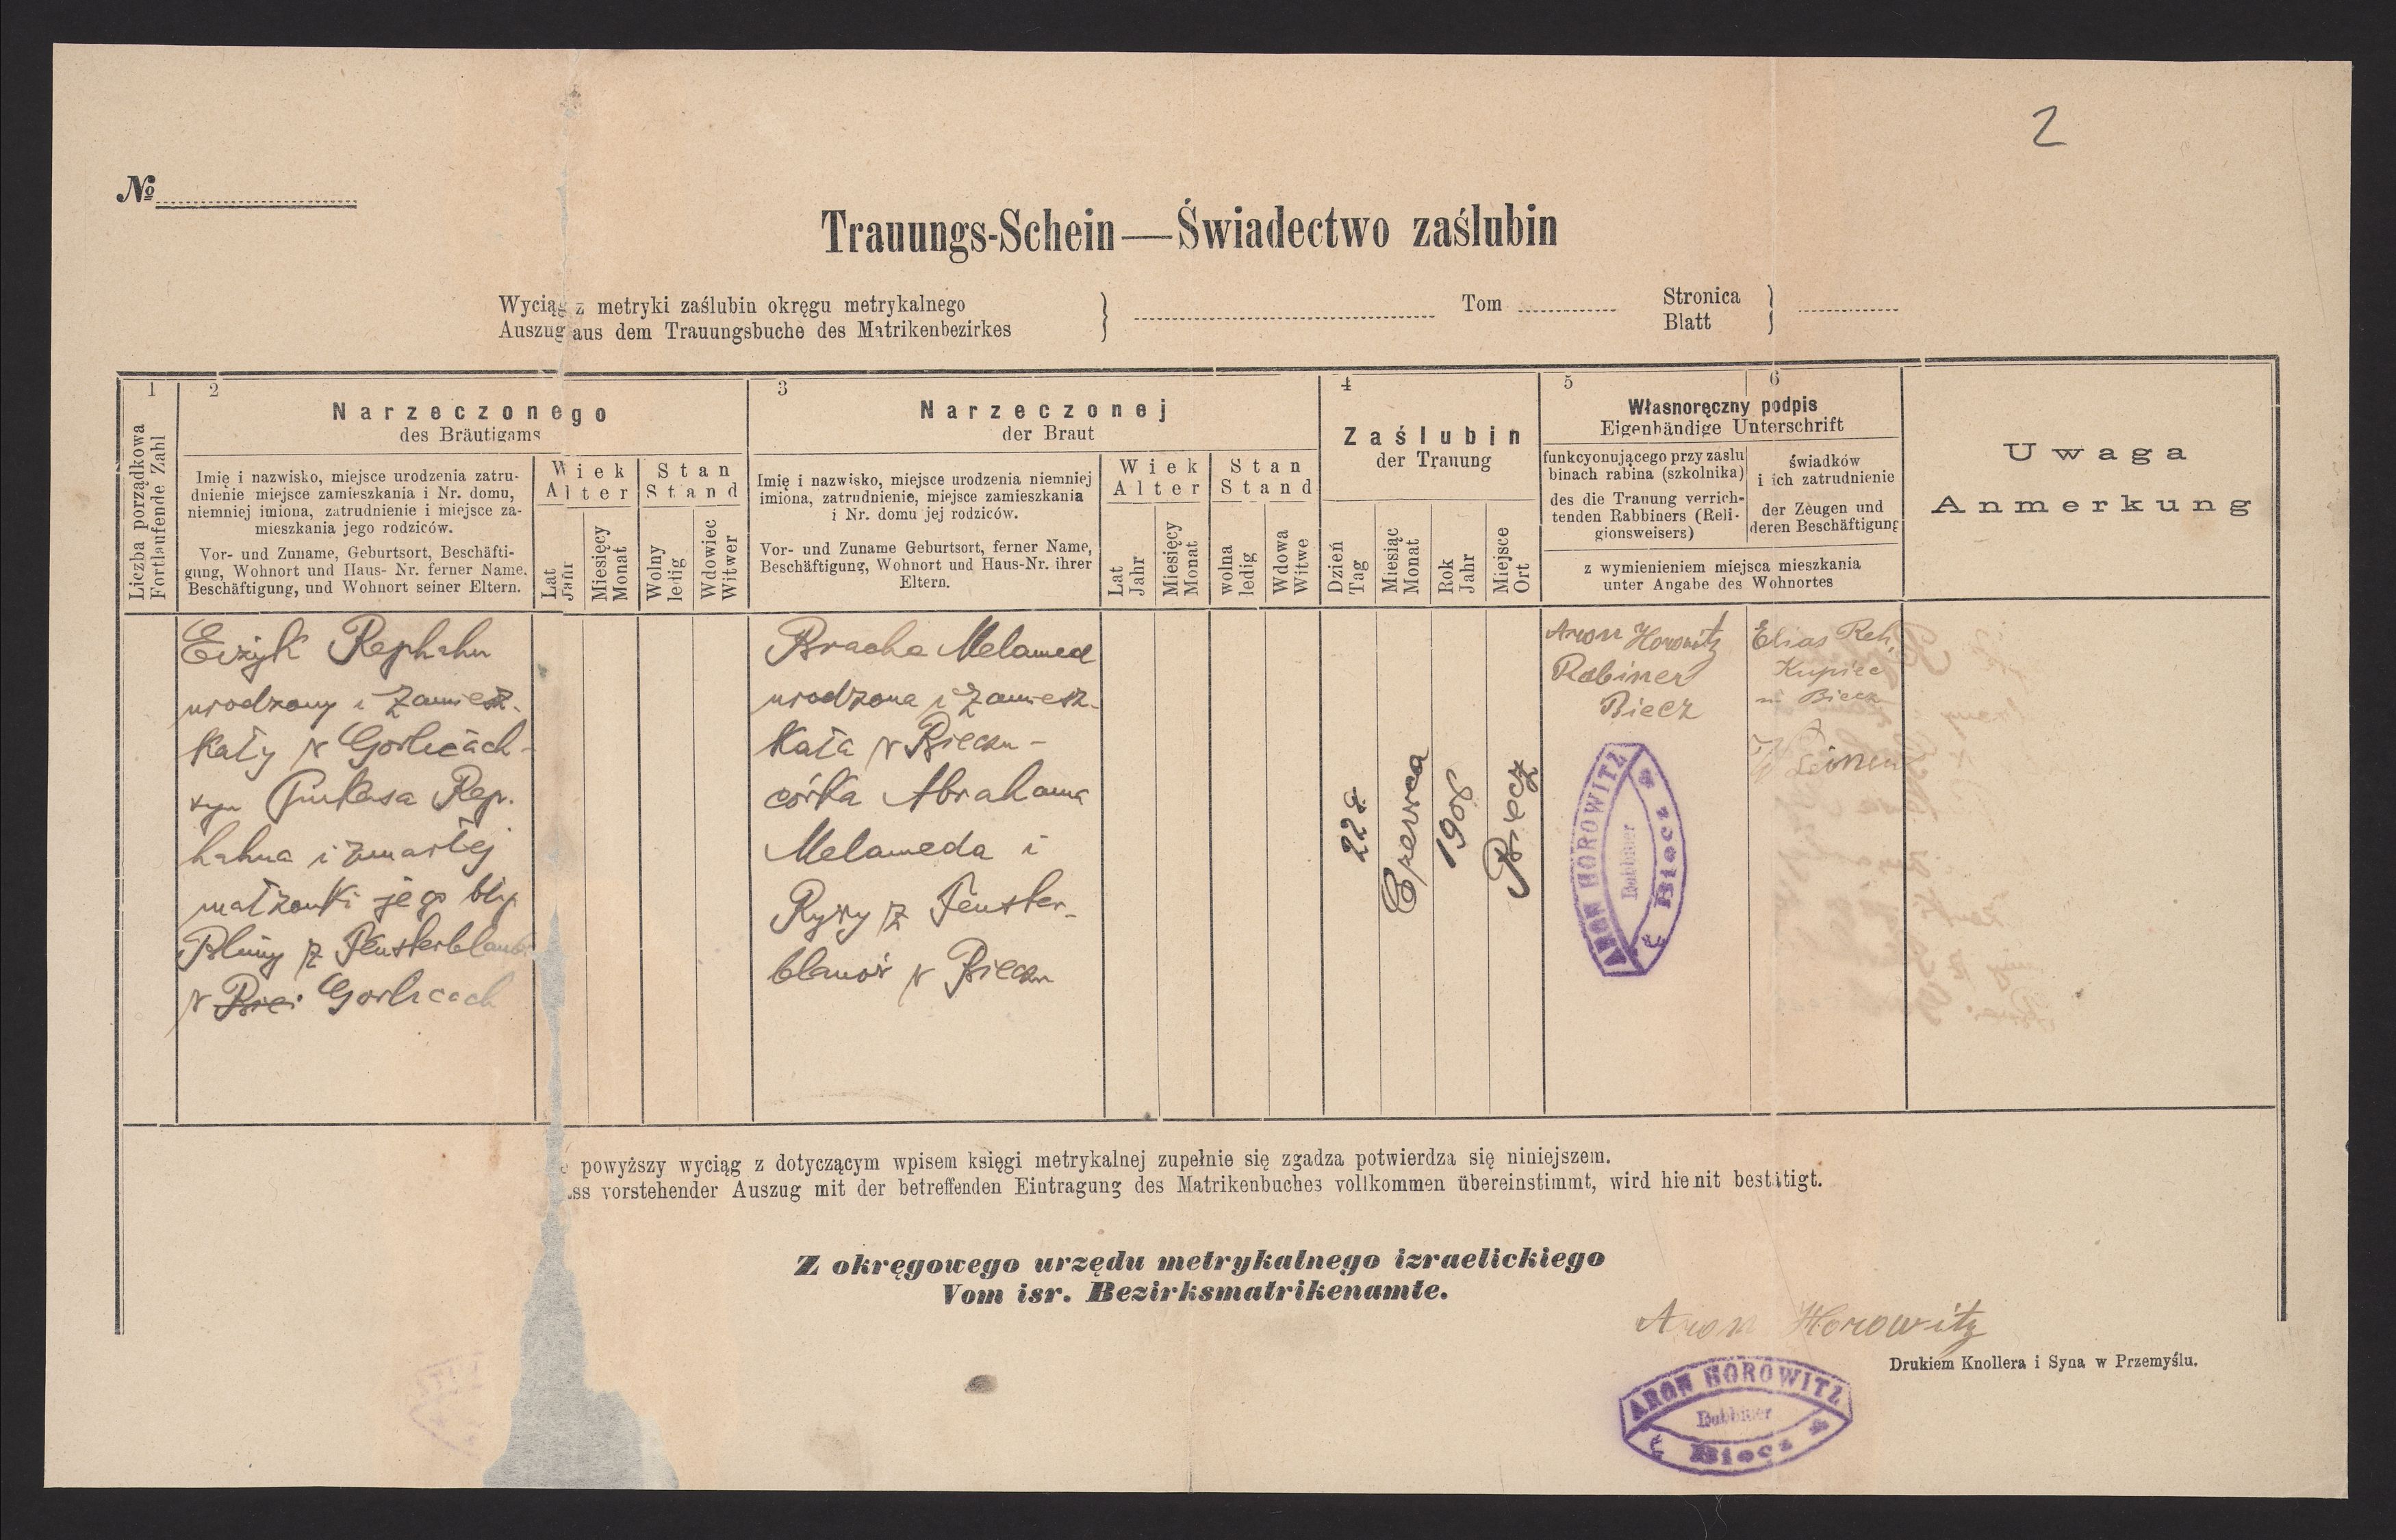 2
№
Trauungs-Schein — Świadectwo zaślubin
Wyciąg z metryki zaślubin okręgu metrykalnego
Auszug aus dem Trauungsbuche des Matrikenbezirkes
Tom
Stronica
Blatt
1
Liczba porządkowa
Fortlaufende Zahl
2
Narzeczonego
des Bräutigams
Imię i nazwisko, miejsce urodzenia zatru-
dnienie miejsce zamieszkania i Nr. domu,
niemniej imiona, zatrudnienie i miejsce za-
mieszkania jego rodziców.
Vor- und Zuname, Geburtsort, Beschäfti-
gung, Wohnort und Haus- Nr. ferner Name,
Beschäftigung, und Wohnort seiner Eltern.
Wiek
Alter
Lat
Jahr
Miesięcy
Monat
Stan
Stand
Wolny
ledig
Wdowiec
Witwer
3
Narzeczonej
der Braut
Imię i nazwisko, miejsce urodzenia niemniej
imiona, zatrudnienie, miejsce zamieszkania
i Nr. domu jej rodziców.
Vor- und Zuname Geburtsort, ferner Name,
Beschäftigung, Wohnort und Haus-Nr. ihrer
Eltern.
Wiek
Alter
Lat
Jahr
Miesięcy
Monat
Stan
Stand
wolna
ledig
Wdowa
Witwe
4
Zaślubin
der Trauung
Dzień
Tag
Miesiąc
Monat
Rok
Jahr
Miejsce
Ort
5
6
Własnoręczny podpis
Eigenhändige Unterschrift
funkcyonującego przy zaślu
binach rabina (szkolnika)
des die Trauung verrich-
tenden Rabbiners (Reli-
gionsweisers)
świadków
i ich zatrudnienie
der und der Zeugen
deren Beschäftigung
z wymienieniem miejsca mieszkania
unter Angabe des Wohnortes
Uwaga
Anmerkung
Eizyk Rephahn
urodzony i zamiesz-
kały w Gorlicach -
syn Pinkasa Rep-
hahna i zmarłej
małżonki jego błp
Blimy z Fensterblauów
w Biei Gorlicach
Bracha Melamed
urodzona i zamiesz-
kała w Bieczu -
córka Abrahama
Melameda i
Rywy z Fenster-
blauów w Bieczu
22g
Czerwca
1908
Biecz
Aron Horowitz
Rabiner
Biecz
ARON HOROWITZ
Rabbiner
Biecz
Elias Reh,
Kupiec
in Biecz
powyższy wyciąg z dotyczącym wpisem księgi metrykalnej zupełnie się zgadza potwierdza się niniejszem.
ss vorstehender Auszug mit der betreffenden Eintragung des Matrikenbuches vollkommen übereinstimmt, wird hiemit bestätigt.
Z okręgowego urzędu metrykalnego izraelickiego
Vom isr. Bezirksmatrikenamte.
Aron Horowitz
Drukiem Knollera i Syna w Przemyślu.
ARON HOROWITZ
Rabbiner
Biecz